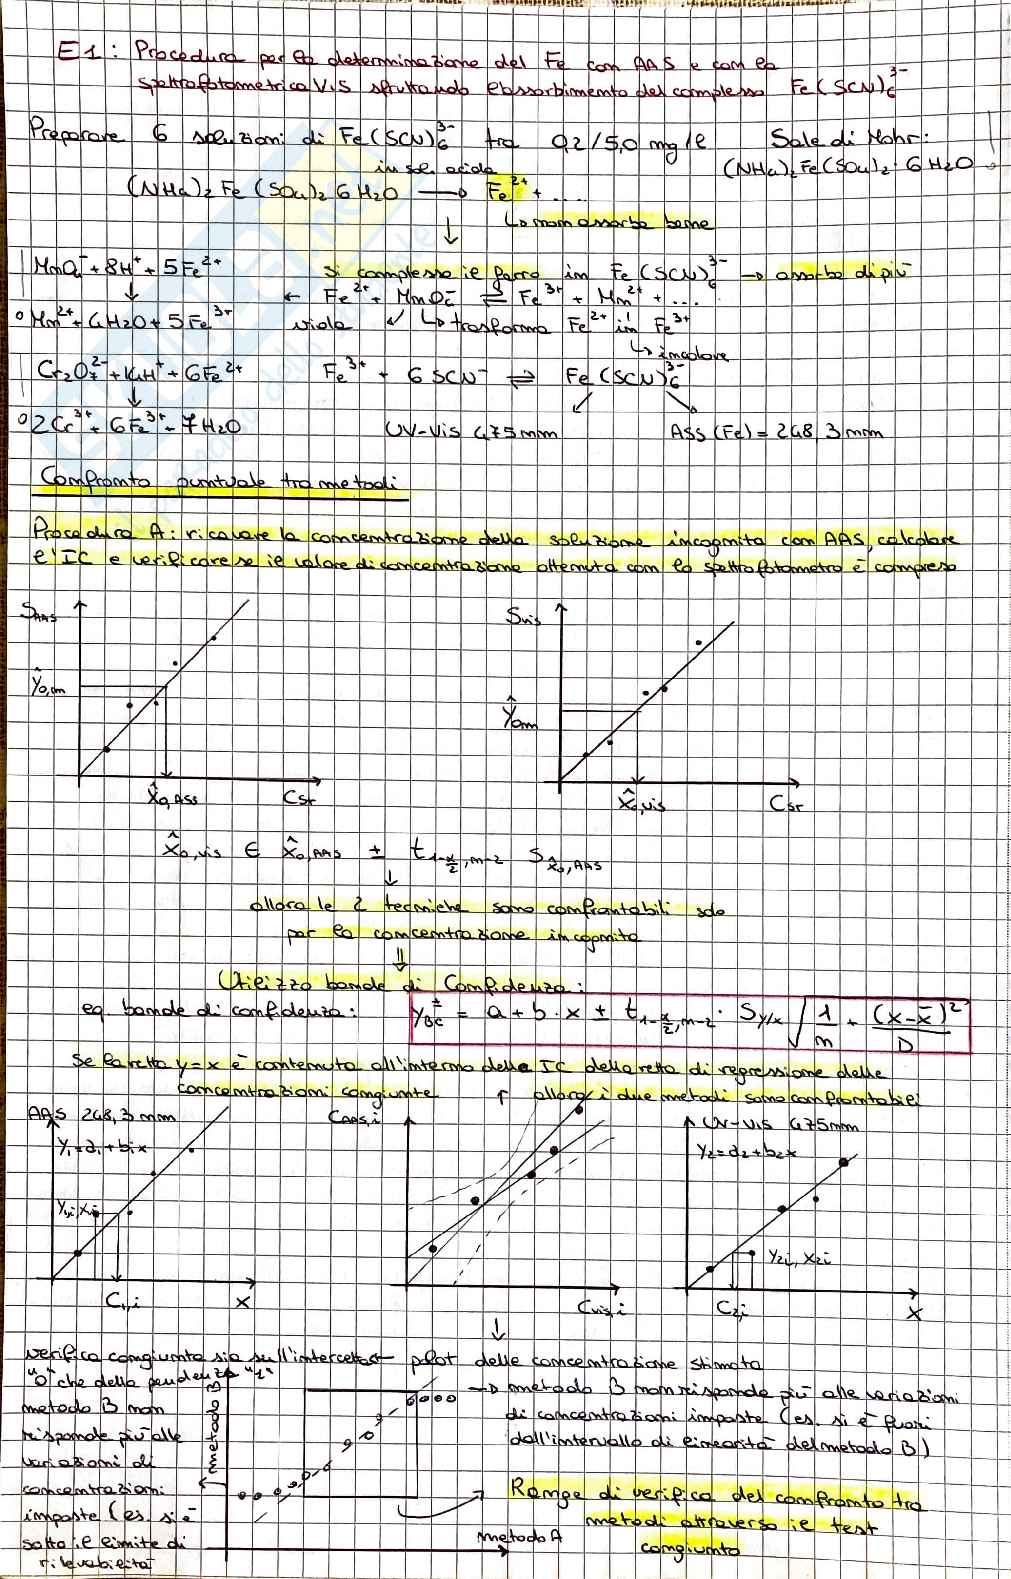 E1: Procedura per la determinazione del Fe con AAS e con la
spettrofotometrica VIS sfruttando l'assorbimento del complesso Fe(SCN)₆³⁻
Preparare 6 soluzioni di Fe(SCN)₆³⁻ tra 0,2/5,0 mg/l
Sale di Mohr:
(NH₄)₂Fe(SO₄)₂·6H₂O
in sol. acida
(NH₄)₂Fe(SO₄)₂6H₂O → Fe²⁺ + ...
↳ non assorbe bene
↓
MnO₄⁻ + 8H⁺ + 5Fe²⁺
↓
Mn²⁺ + 4H₂O + 5Fe³⁺
si complessa il ferro in Fe(SCN)₆³⁻ → assorbe di più
← Fe²⁺ + MnO₄⁻ ⇌ Fe³⁺ + Mn²⁺ + ...
viola ↙ ↳ trasforma Fe²⁺ in Fe³⁺
↳ incolore
Cr₂O₇²⁻ + 14H⁺ + 6Fe²⁺
↓
2Cr³⁺ + 6Fe³⁺ + 7H₂O
Fe³⁺ + 6SCN⁻ ⇌ Fe(SCN)₆³⁻
UV-Vis 475nm
ASS (Fe) = 248,3 nm
Confronto puntuale tra metodi
Procedura A: ricavare la concentrazione della soluzione incognita con AAS, calcolare
l'IC e verificare se il valore di concentrazione ottenuta con lo spettrofotometro è compreso
S_AAS
ŷ₀,m
x̂₀,ASS
Cst
S_vis
ŷ₀m
x̂₀,vis
Cst
x̂₀,vis ∈ x̂₀,AAS ± t₁₋α/₂,n-2 S_x̂₀,AAS
↓
allora le 2 tecniche sono confrontabili solo
per la concentrazione incognita
⇓
Utilizzo bande di Confidenza:
eq. bande di confidenza: y_BC^± = a + b·x ± t₁₋α/₂,n-2 · S_y/x √(1/n + (x-x̄)²/D)
Se la retta y=x è contenuta all'interno delle IC della retta di regressione delle
concentrazioni congiunte ↑ allora i due metodi sono confrontabili
AAS 248,3 nm
y₁=a₁+b₁x
y₁ᵢ,xᵢ
C₁,ᵢ
x
C_AAS,i
C_vis,i
UV-VIS 475nm
y₂=a₂+b₂x
y₂ᵢ, x₂ᵢ
C₂,ᵢ
x
↓
verifica congiunta sia sull'intercetta
"0" che della pendenza "1"
plot delle concentrazione stimata
metodo B non
risponde più alle
variazioni di
concentrazioni
imposte (es. si è
sotto il limite di
rilevabilità
metodo B
metodo A
→ metodo B non risponde più alle variazioni
di concentrazioni imposte (es. si è fuori
dall'intervallo di linearità del metodo B)
Range di verifica del confronto tra
metodi attraverso il test
congiunto